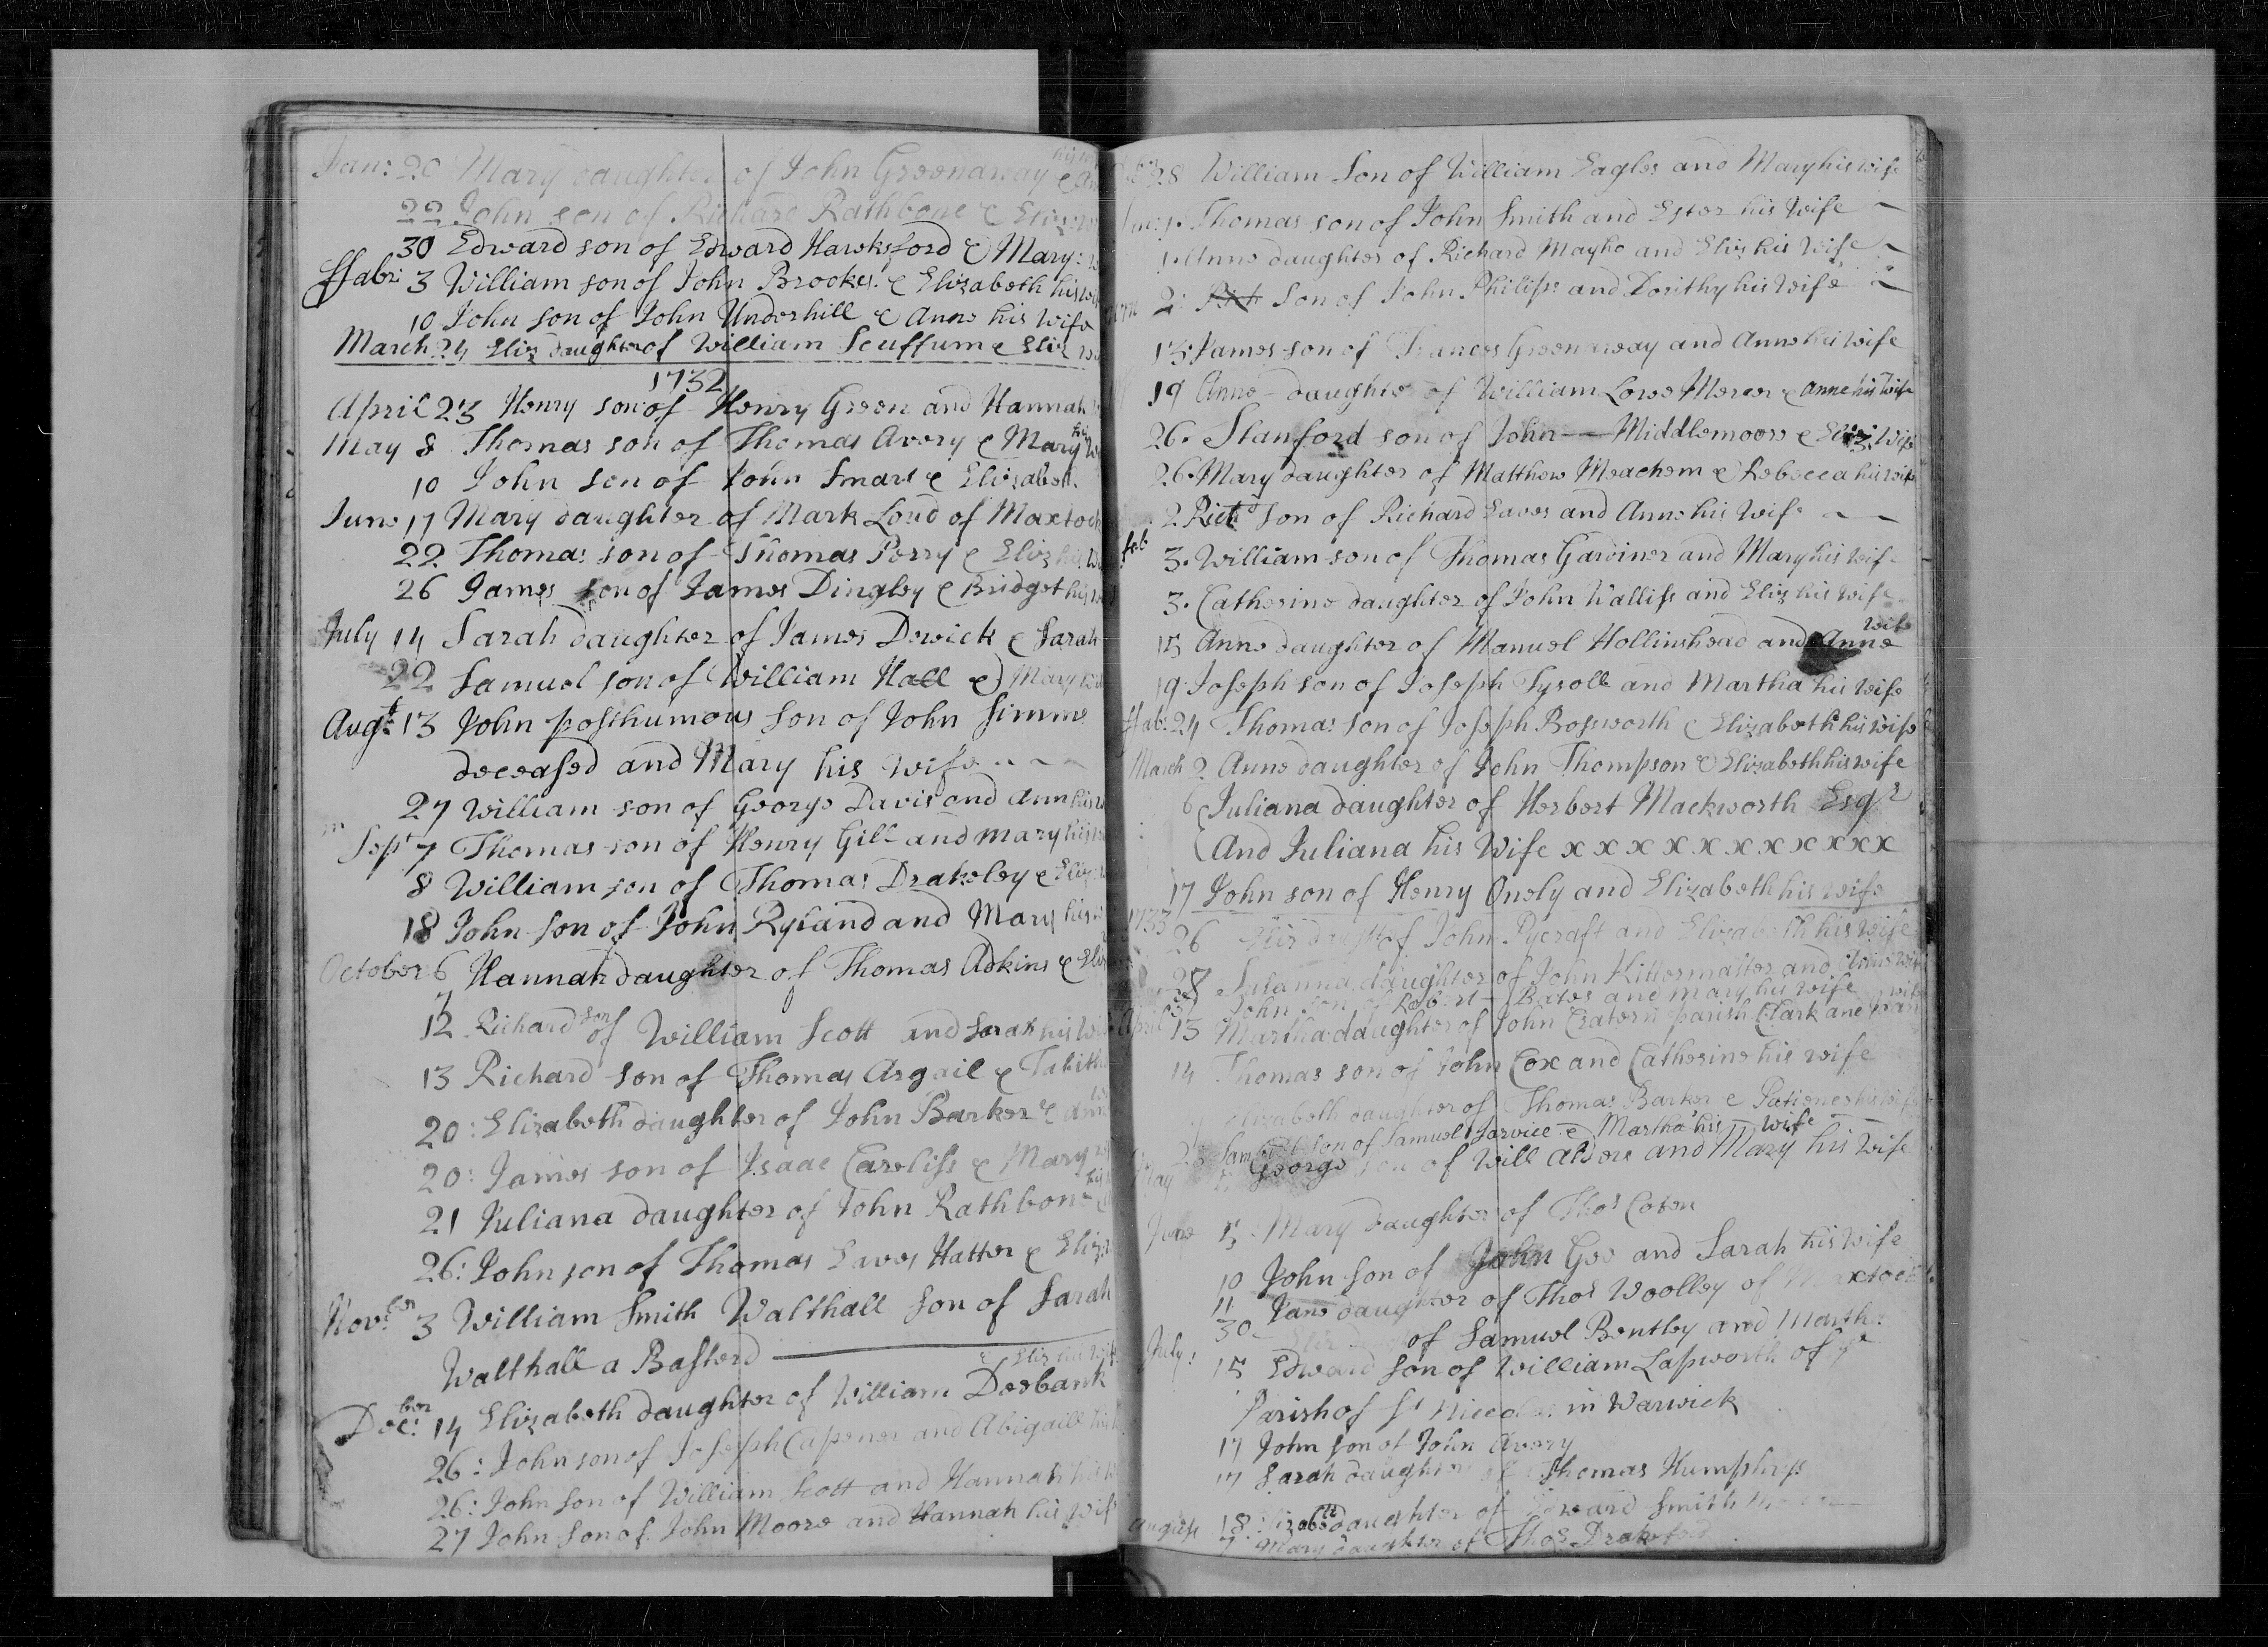 Jan: 20 Mary daughter of John Greenaway &
22 John son of Richard Rathbone & Eliz:
30 Edward son of Edward Hawksford & Mary:
ffabr: 3 William son of John Brookes & Elizabeth his wif
10 John son of John Underhill & Anne his Wife
March 24 Eliz daughter of William Scuffum & Eliz
1732
April 23 Henry son of Henry Green and Hannah
May 8 Thomas son of Thomas Avery & Mary
10 John son of John Smart & Elizabeth
June 17 Mary daughter of Mark Loud of Maxtock
22 Thomas son of Thomas Perry & Eliz his
26 James son of James Dingley & Bridget his
July 14 Sarah daughter of James Dewick & Sarah
22 Samuel son of William Hall & Mary
Augt 13 John posthumous son of John Simms
deceased and Mary his wife
27 William son of George Davis and Ann his
Sept 7 Thomas son of Henry Gill and Mary his
8 William son of Thomas Drakeley & Eliz:
18 John son of John Ryland and Mary his
October 6 Hannah daughter of Thomas Adkins & Eliz
12 Richard son of William Scott and Sarah his wi
13 Richard son of Thomas Argail & Tabith
20: Elizabeth daughter of John Barker & Ann
20: James son of Isaac Careliss & Mary
21 Juliana daughter of John Rathbone
26: John son of Thomas Eaves Hatter & Eliz
Novber 3 William Smith Walthall son of Sarah
Walthall a Basterd
& Eliz his wif
Decber: 14 Elizabeth daughter of William Deebank
26: John son of Joseph Capener and Abigaill his
26: John son of William Scott and Hannah his
27 John son of John Moore and Hannah his wif
28 William Son of William Eagles and Mary his wife
1. Thomas son of John Smith and Ester his Wife
1. Anne daughter of Richard Mayho and Eliz his Wife
2: Son of John Philips and Dorithy his Wife
13: James son of Frances Greenaway and Anne his Wife
19 Anne daughter of William Lowe Mercer & Anne his Wife
26. Stanford son of John Middlemoore & Eliz: Wife
26. Mary daughter of Matthew Meacham & Rebecca his wife
2 Richd Son of Richard Eaves and Anne his Wife
feb 3. William son of Thomas Gardiner and Mary his Wife
3. Catherine daughter of John Walliss and Eliz his Wife
wife
15 Anne daughter of Manuel Hollinshead and Anne
19. Joseph son of Joseph Tysoll and Martha his Wife
ffab: 24 Thomas son of Joseph Bossworth & Elizabeth his Wife
March 2 Anne daughter of John Thompson & Elizabeth his wife
6 Juliana daughter of Herbert Mackworth Esqr
And Juliana his Wife x x x x x x x x x x x
17 John son of Henry Onely and Elizabeth his wife
1733
26 Eliz daught of John Pycraft and Elizabeth his Wife
28 Susanna daughter of John Kittermaster and his wife
John son of Robert Bates and Mary his wife
April 13 Martha daughter of John Cratern parish Clark and
14 Thomas son of John Cox and Catherine his wife
Elizabeth daughter of Thomas Barker & Patience his wife
23 Samuel son of Samuel Sarvice & Martha his Wife
May George son of Will Aldore and Mary his Wife
June 5 Mary daughter of Thos Coten
10 John son of John Gee and Sarah his Wife
11 Jane daughter of Thos Woolley of Maxtock
30 of Samuel Bentley and Martha
July: 15 Edward son of William Lapworth of ye
Parish of St in Warwick
17 John son of John Avery
17 Sarah daughter of Thomas Humphrys
August 18 Elizabeth daughter of Edward Smith
Mary daughter of Thos Drakeford